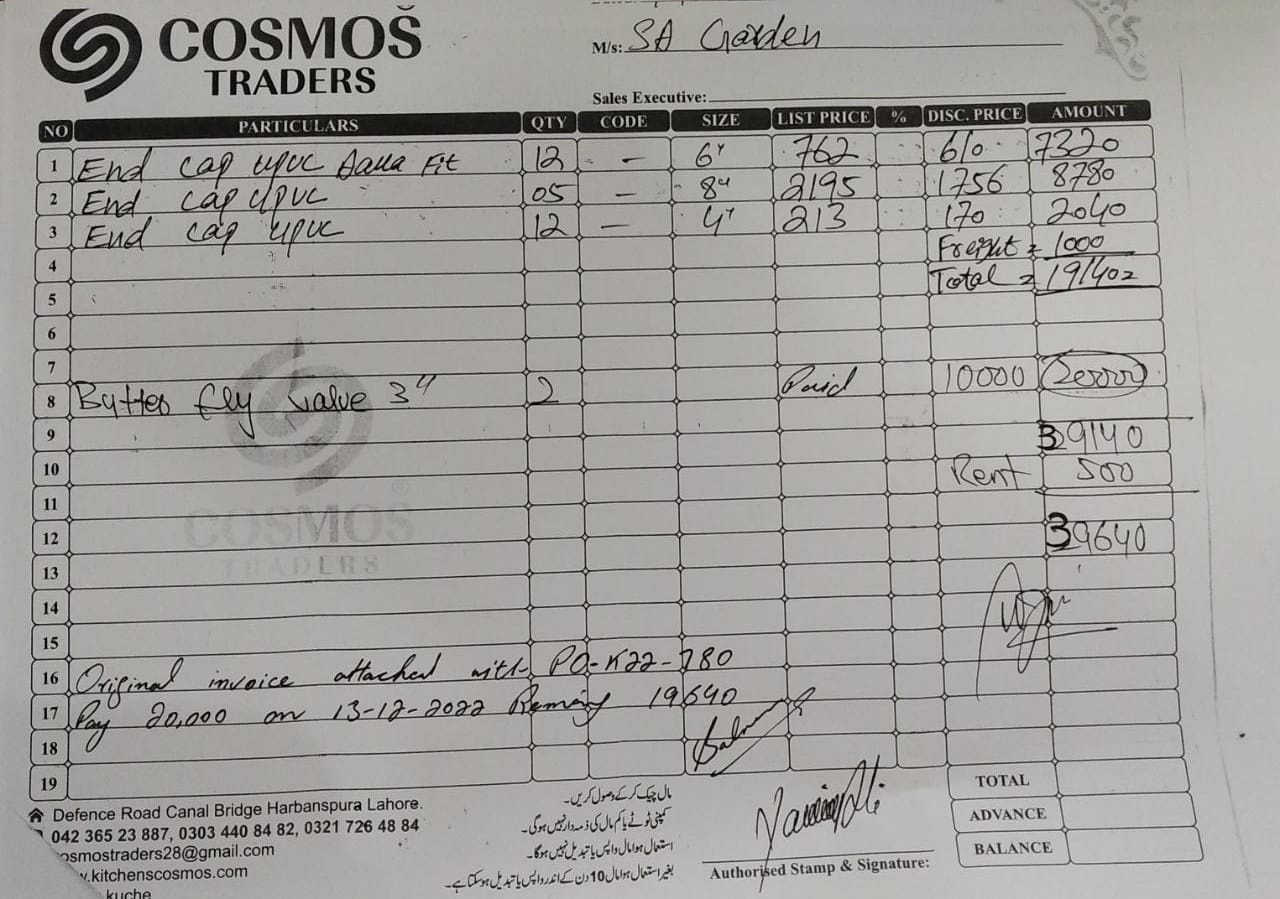 COSMOS
TRADERS
M/s: SA Garden
Sales Executive:
NO PARTICULARS QTY CODE SIZE LIST PRICE % DISC. PRICE AMOUNT
1 End cap upvc Aqua Fit 12 - 6" 762 610 7320
2 End cap upvc 05 - 8" 2195 1756 8780
3 End cap upvc 12 - 4" 213 170 2040
4 Freight = 1000
5 Total = 19140
6
7
8 Butter fly valve 3" 2 Paid 10000 20000
9 39140
10 Rent 500
11
12 39640
COSMOS
TRADERS
13
14
15
16 Original invoice attached with PO-K22-780
17 Pay 20,000 on 13-12-2022 Remaing 19640
18
19
TOTAL
ADVANCE
BALANCE
Defence Road Canal Bridge Harbanspura Lahore.
042 365 23 887, 0303 440 84 82, 0321 726 48 84
osmostraders28@gmail.com
.kitchenscosmos.com
kuche
مال چیک کر کے وصول کریں۔
کمپنی ٹوٹے یا کم مال کی ذمہ دار نہیں ہوگی۔
استعمال ہوا مال واپس یا تبدیل نہیں ہوگا۔
بغیر استعمال ہوا مال 10 دن کے اندر واپس یا تبدیل ہو سکتا ہے۔
Authorised Stamp & Signature: